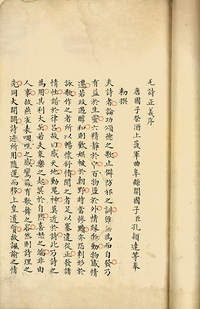 毛詩正義序
唐國子祭酒上護軍曲阜縣開國子臣孔穎達等奉
勅撰
夫詩者論功頌德之歌止僻防邪之訓雖無為而自發乃
有益於生靈六情靜於中百物盪於外情緣物動物感情
遷若政遇醇和則歡娛被於朝野時當慘黷亦怨刺形於
詠歌作之者所以暢懷舒憤聞之者足以塞違從正發諸
情性諧於律呂故曰感天地動鬼神莫近於詩此乃詩之
為用其利大矣若夫哀樂之起冥於自然喜怒之端非由
人事故燕雀表啁噍之感鸞鳳有歌舞之容然則詩理之
先同夫開闢詩迹所用隨運而移上皇道質故諷諭之情